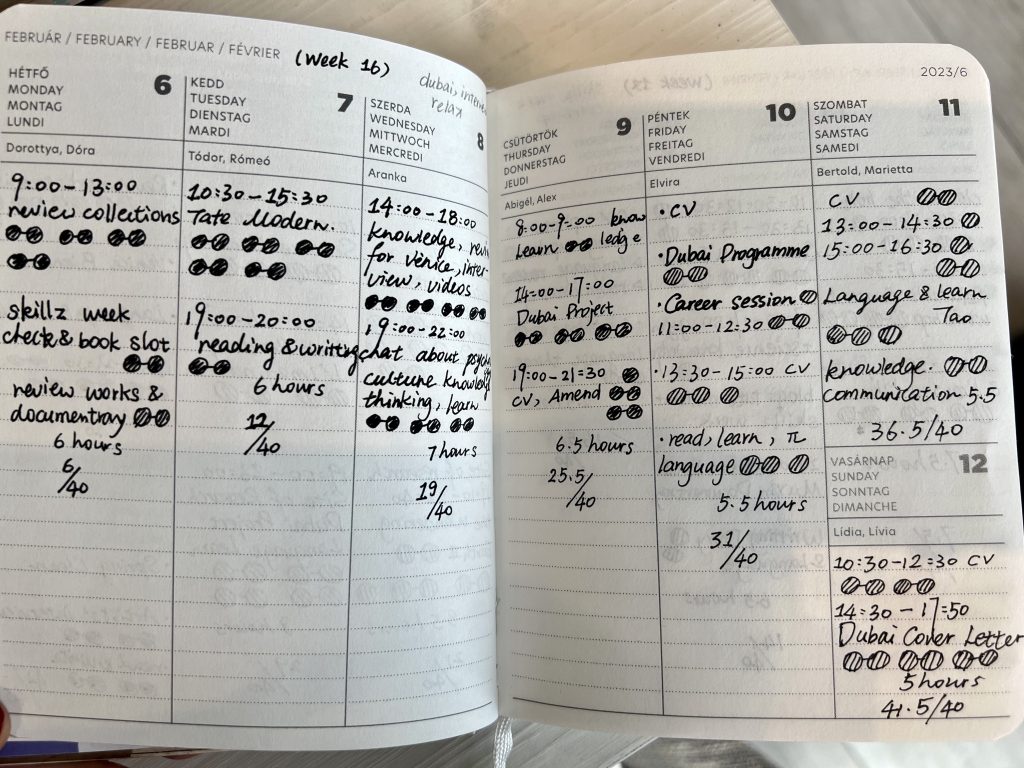 FEBRUÁR / FEBRUARY / FEBRUAR / FÉVRIER (Week 16)
dubai,
relax
HÉTFŐ
MONDAY
MONTAG
LUNDI
6
Dorottya, Dóra
9:00-13:00
review collections
skillz week
check & book slot
review works &
documentray
6 hours
6/40
KEDD
TUESDAY
DIENSTAG
MARDI
7
Tódor, Rómeó
10:30-15:30
Tate Modern.
19:00-20:00
reading & writting
6 hours
12/40
SZERDA
WEDNESDAY
MITTWOCH
MERCREDI
8
Aranka
14:00-18:00
knowledge,
for venice, inter-
view, videos
19:00-22:00
chat about
culture
thinking, learn
7 hours
19/40
2023/6
CSÜTÖRTÖK
THURSDAY
DONNERSTAG
JEUDI
9
Abigél, Alex
8:00-9:00 know
Learn ledge
14:00-17:00
Dubai Project
19:00-21:30
CV, Amend
6.5 hours
25.5/40
PÉNTEK
FRIDAY
FREITAG
VENDREDI
10
Elvira
·CV
·Dubai Programme
·Career session
11:00-12:30
·13:30-15:00 CV
·read, learn, π
language
5.5 hours
31/40
SZOMBAT
SATURDAY
SAMSTAG
SAMEDI
11
Bertold, Marietta
CV
13:00-14:30
15:00-16:30
Language & learn
Tao
knowledge.
communication 5.5
36.5/40
VASÁRNAP
SUNDAY
SONNTAG
DIMANCHE
12
Lídia, Lívia
10:30-12:30 CV
14:30-17:50
Dubai Cover Letter
5 hours
41.5/40